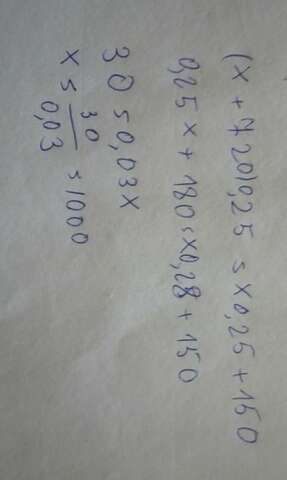 (x + 720)0,25 = x0,25 + 150
0,25x + 180 = x0,28 + 150
30 = 0,03x
x = 30/0,03 = 1000